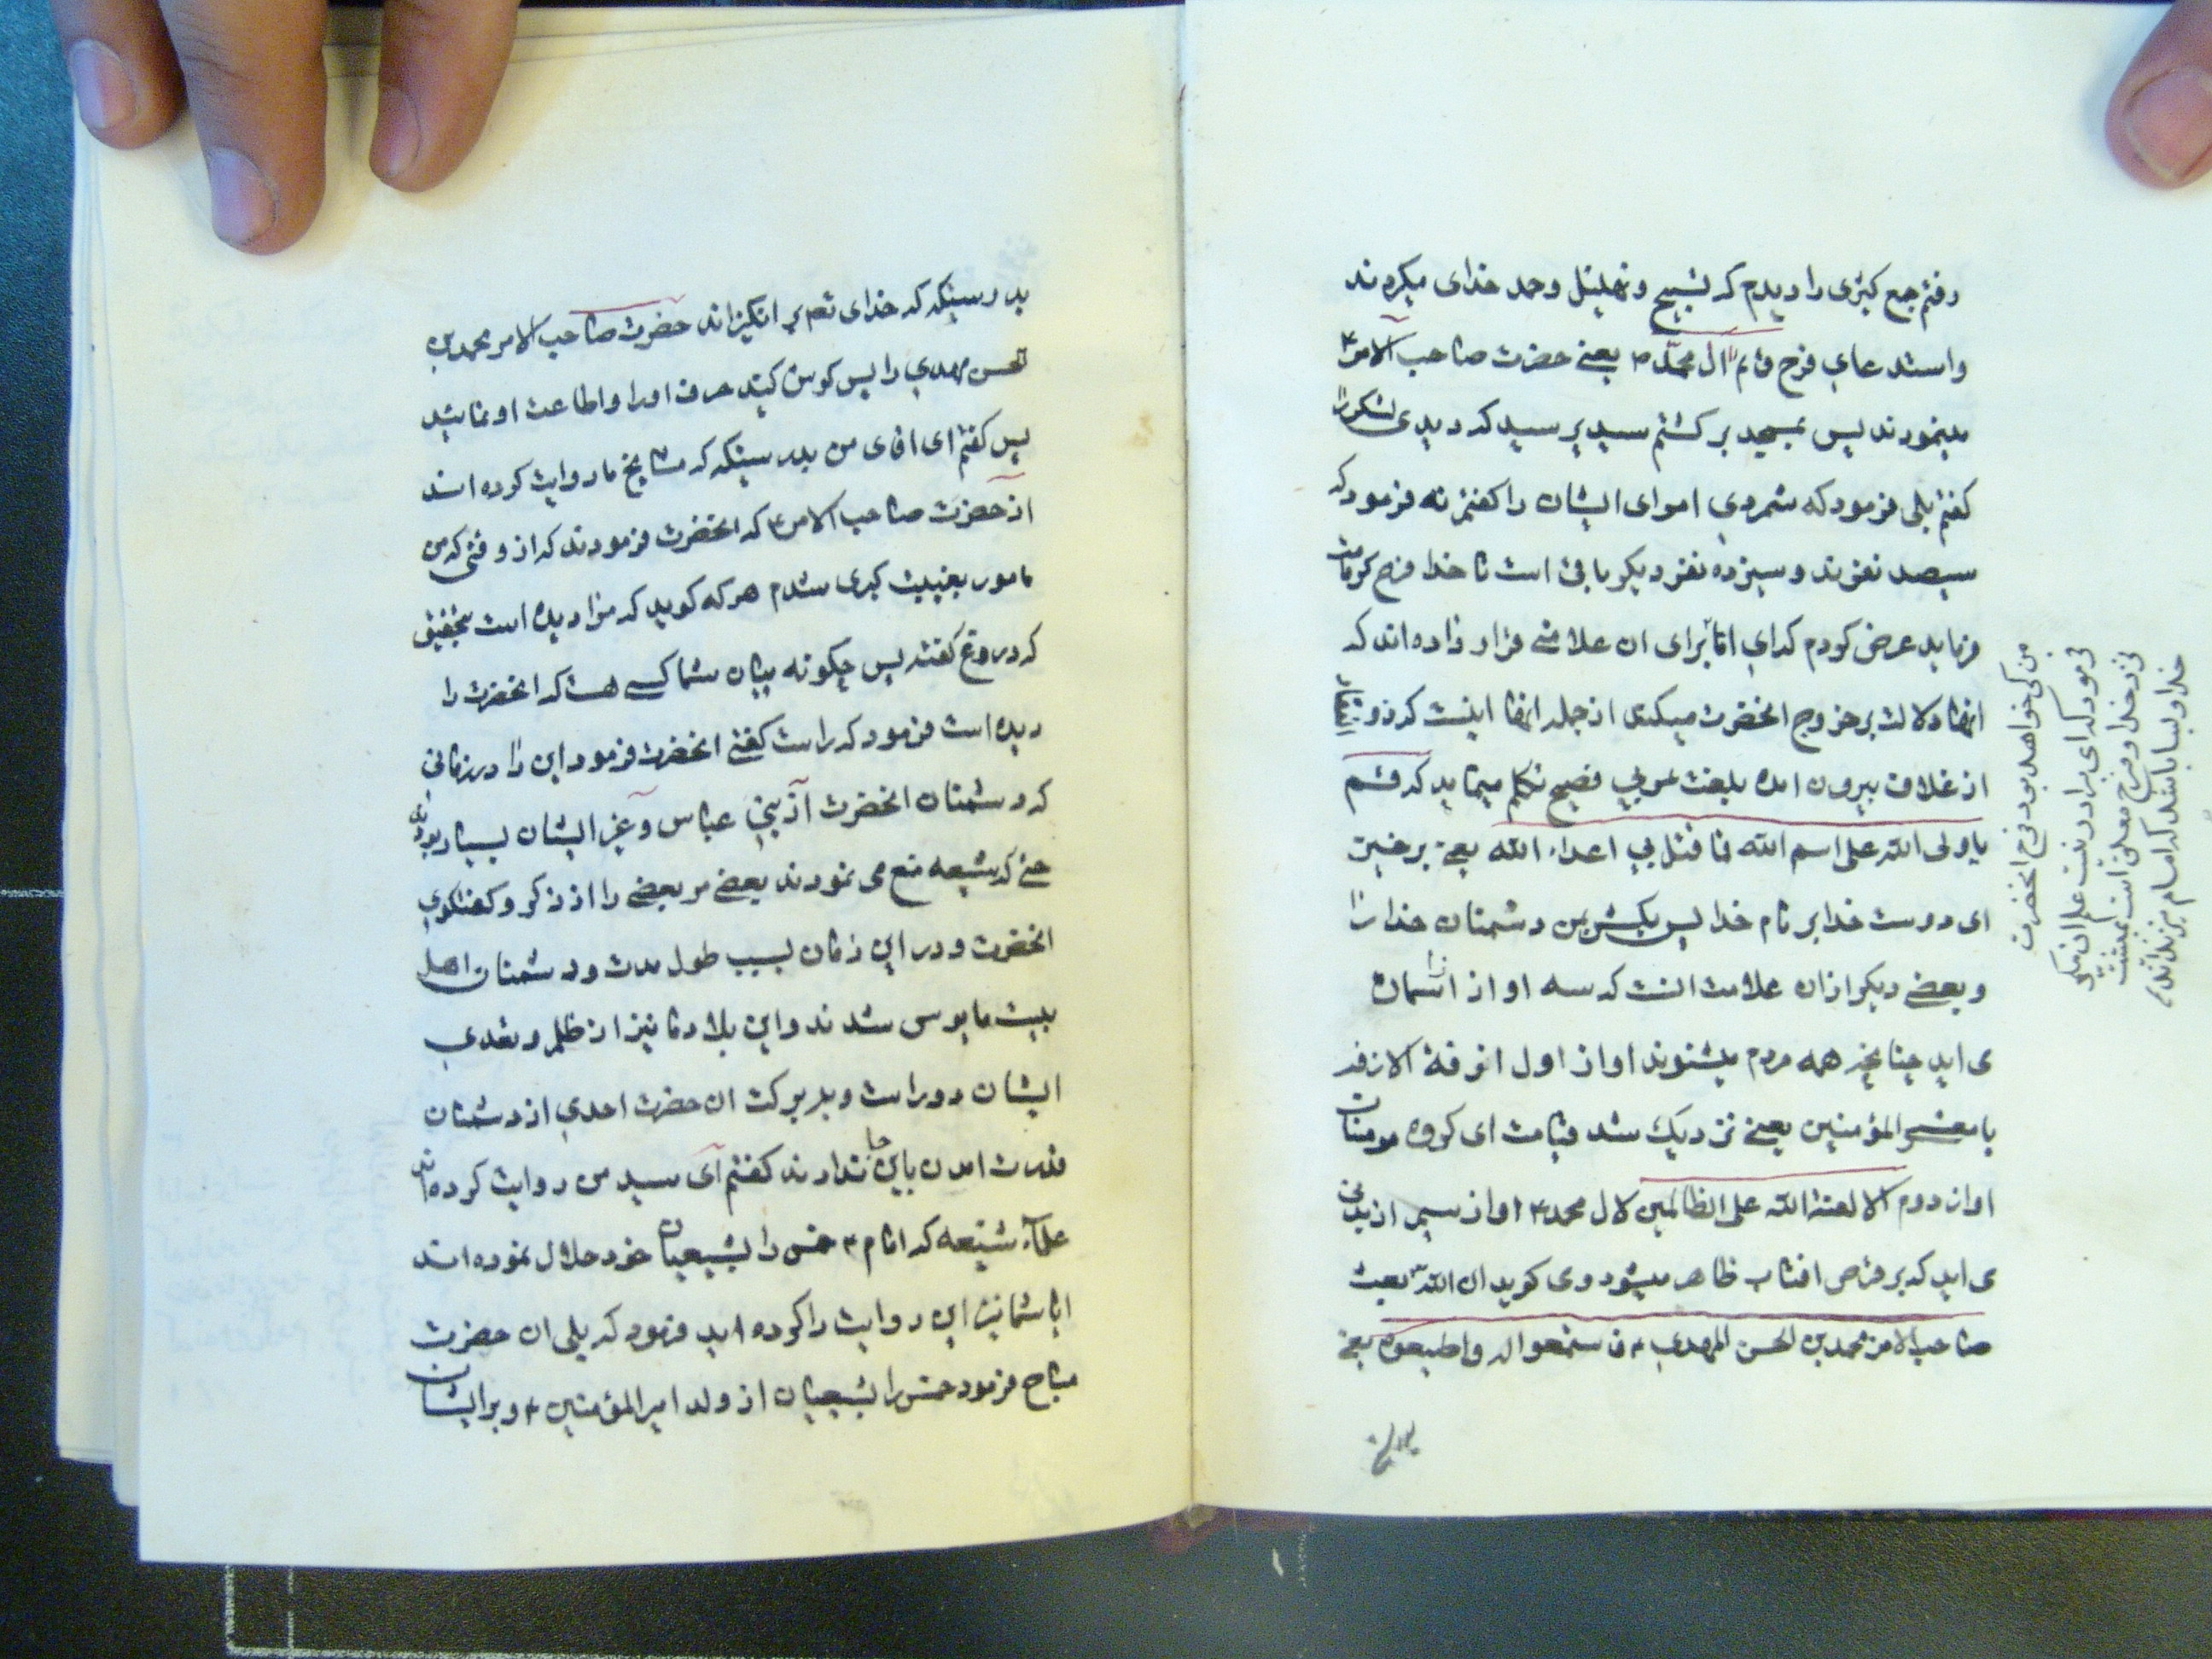 رفتم جمع کثیری را دیدم که تسبیح و تهلیل و حمد خدای میکردند
و استدعای فرج قائم آل محمد ص یعنے حضرت صاحب الامر ع
مینمودند پس بمسجد برگشتم سید پرسید که دیدی لشکر را
گفتم بلی فرمود که شمردی امرای ایشان را گفتم نه فرمود که
سیصد نفرند و سیزده نفر دیگر باقی است تا خدا فرج کرامت
فرماید عرض کردم که ای آقا برای آن علامتے قرار داده اند که
انها دلالت بر خروج انحضرت میکند از جمله انها اینست که ذوالفقار
از غلاف بیرون امده بلغت عربی فصیح تکلم مینماید که قسم
یا ولی الله علی اسم الله فاقتل بی اعداء الله یعنے برخیز
ای دوست خدا بر نام خدا پس بکش بمن دشمنان خدا را
و بعضے دیگر ازان علامت انست که سه اواز از اسمان
می اید چنانچه همه مردم میشنوند اواز اول ازفة الازفه
یا معشر المؤمنین یعنے نزدیک شد قیامت ای کروه مومنان
اواز دوم الا لعنة الله علی الظالمین لال محمد ع اواز سیم از بدنی
می اید که بر قرص افتاب ظاهر میشود و می کوید ان الله بعث
صاحب الامر محمد بن الحسن المهدی ع فاستمعوا له و اطیعوه یعنے
من کی خواهد بود فرج انحضرت
فرمود که ای برادر نیست علم ان مکر
نزد خدا و فرج معلق است بمشیت
خدا و بسا باشد که امام نیز نداند
بدرستیکه که خدای تعم بر انگیزاند حضرت صاحب الامر محمد بن
الحسن مهدی را پس کوش کنید حرف او را و اطاعت او نمائید
پس گفتم ای اقای من بدرستیکه که مشایخ ما روایت کرده اند
از حضرت صاحب الامر ع که انحضرت فرمودند که از وقتی که من
مامور بغیبت کبری شدم هر که کوید که مرا دیده است بتحقیق
که دروغ گفته پس چکونه میان شما کسے هست که انحضرت را
دیده است فرمود که راست گفتے انحضرت فرمود این را در زمانی
که دشمنان انحضرت از بنی عباس و غیر ایشان بسیار بودند
حتے که شیعه منع می نمودند بعضے مر بعضے را از ذکر و گفتکوی
انحضرت و در این زمان بسبب طول مدت و دشمنان اهل
بیت مایوس شدند و این بلاد ما نیز از ظلم و تعدی
ایشان دور است و بدبرکت ان حضرت احدی از دشمنان
قدرت امدن باین جا ندارند گفتم آی سید من روایت کرده اند
علماء شیعه که امام ع خمس را بشیعیان خود حلال نموده اند
ایا شما نیز این روایت را کرده اید فرمود که بلی ان حضرت
مباح فرمود خمس را بشیعیان از ولد امیر المؤمنین ع و بر ایشان